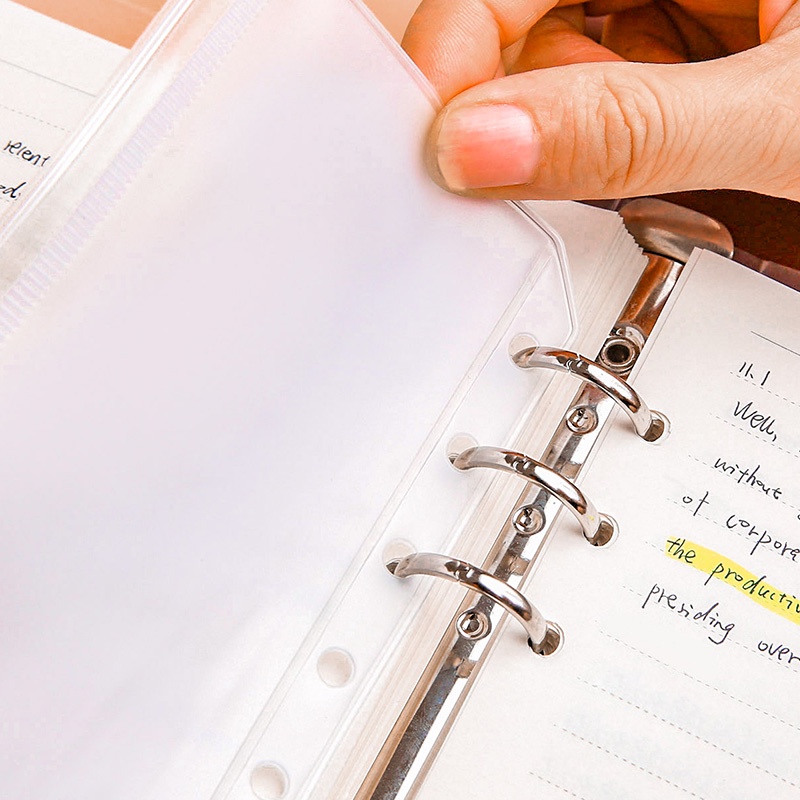 relent
ed
11.1
Well,
without
of corpora
the productiv
presiding over